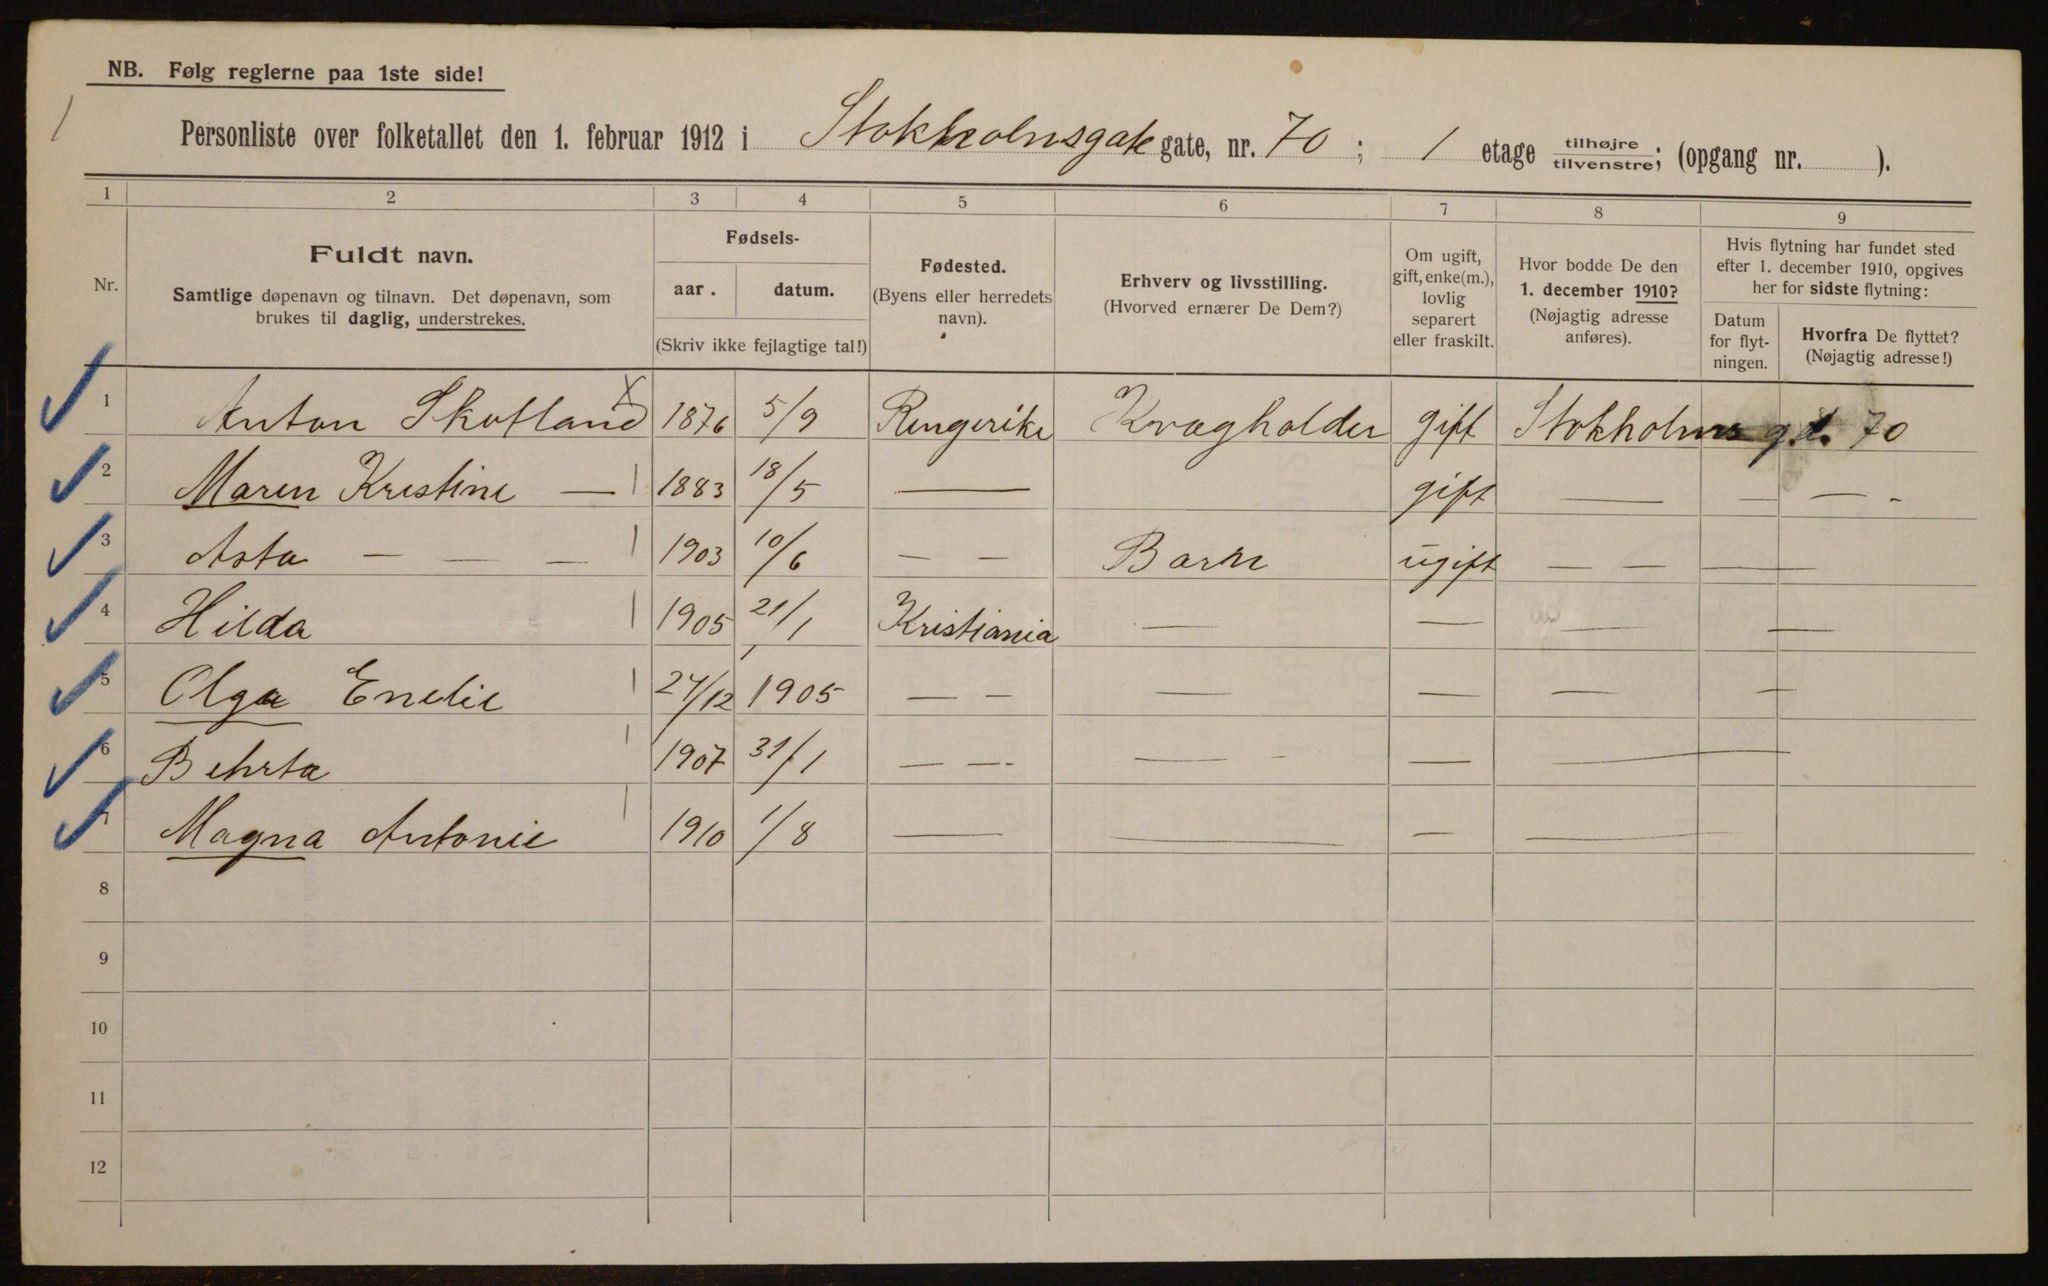 NB. Følg reglerne paa 1ste side!
1
Personliste over folketallet den 1. februar 1912 i Stokholmsgate gate, nr. 70 ; 1 etage tilhøjre tilvenstre; (opgang nr. ).
1 2 3 4 5 6 7 8 9
Nr.
Fuldt navn.
Samtlige døpenavn og tilnavn. Det døpenavn, som
brukes til daglig, understrekes.
Fødsels-
aar. datum.
(Skriv ikke fejlagtige tal!)
Fødested.
(Byens eller herredets
navn).
Erhverv og livsstilling.
(Hvorved ernærer De Dem?)
Om ugift,
gift, enke(m.),
lovlig
separert
eller fraskilt.
Hvor bodde De den
1. december 1910?
(Nøjagtig adresse
anføres).
Hvis flytning har fundet sted
efter 1. december 1910, opgives
her for sidste flytning:
Datum
for flyt-
ningen.
Hvorfra De flyttet?
(Nøjagtig adresse!)
1 Anton Skotland x 1876 5/9 Ringerike Kvægholder gift Stokholms gd. 70
2 Maren Kristine — 1883 18/5 — gift — — —
3 Asta — — — 1903 10/6 — — Barn ugift — — —
4 Hilda 1905 21/1 Kristiania — — — —
5 Olga Enelie 27/12 1905 — — — — — —
6 Behrta 1907 31/1 — — — — —
7 Magna Antonie 1910 1/8 — — — —
8
9
10
11
12